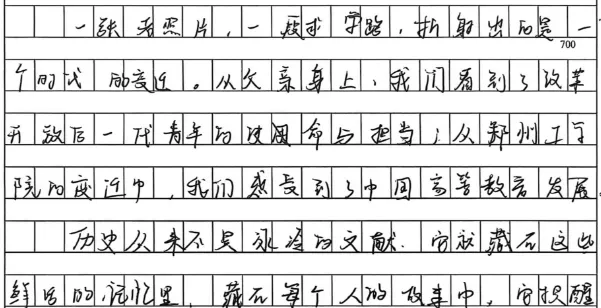 一张老照片，一段求学路，折射出的是一
700
个时代的变迁。从父亲身上，我们看到了改革
开放后一代青年的使命与担当；从郑州工学
院的变迁中，我们感受到了中国高等教育发展。
历史从来不是冰冷的文献，它就藏在这些
鲜活的记忆里，藏在每个人的故事中，它提醒